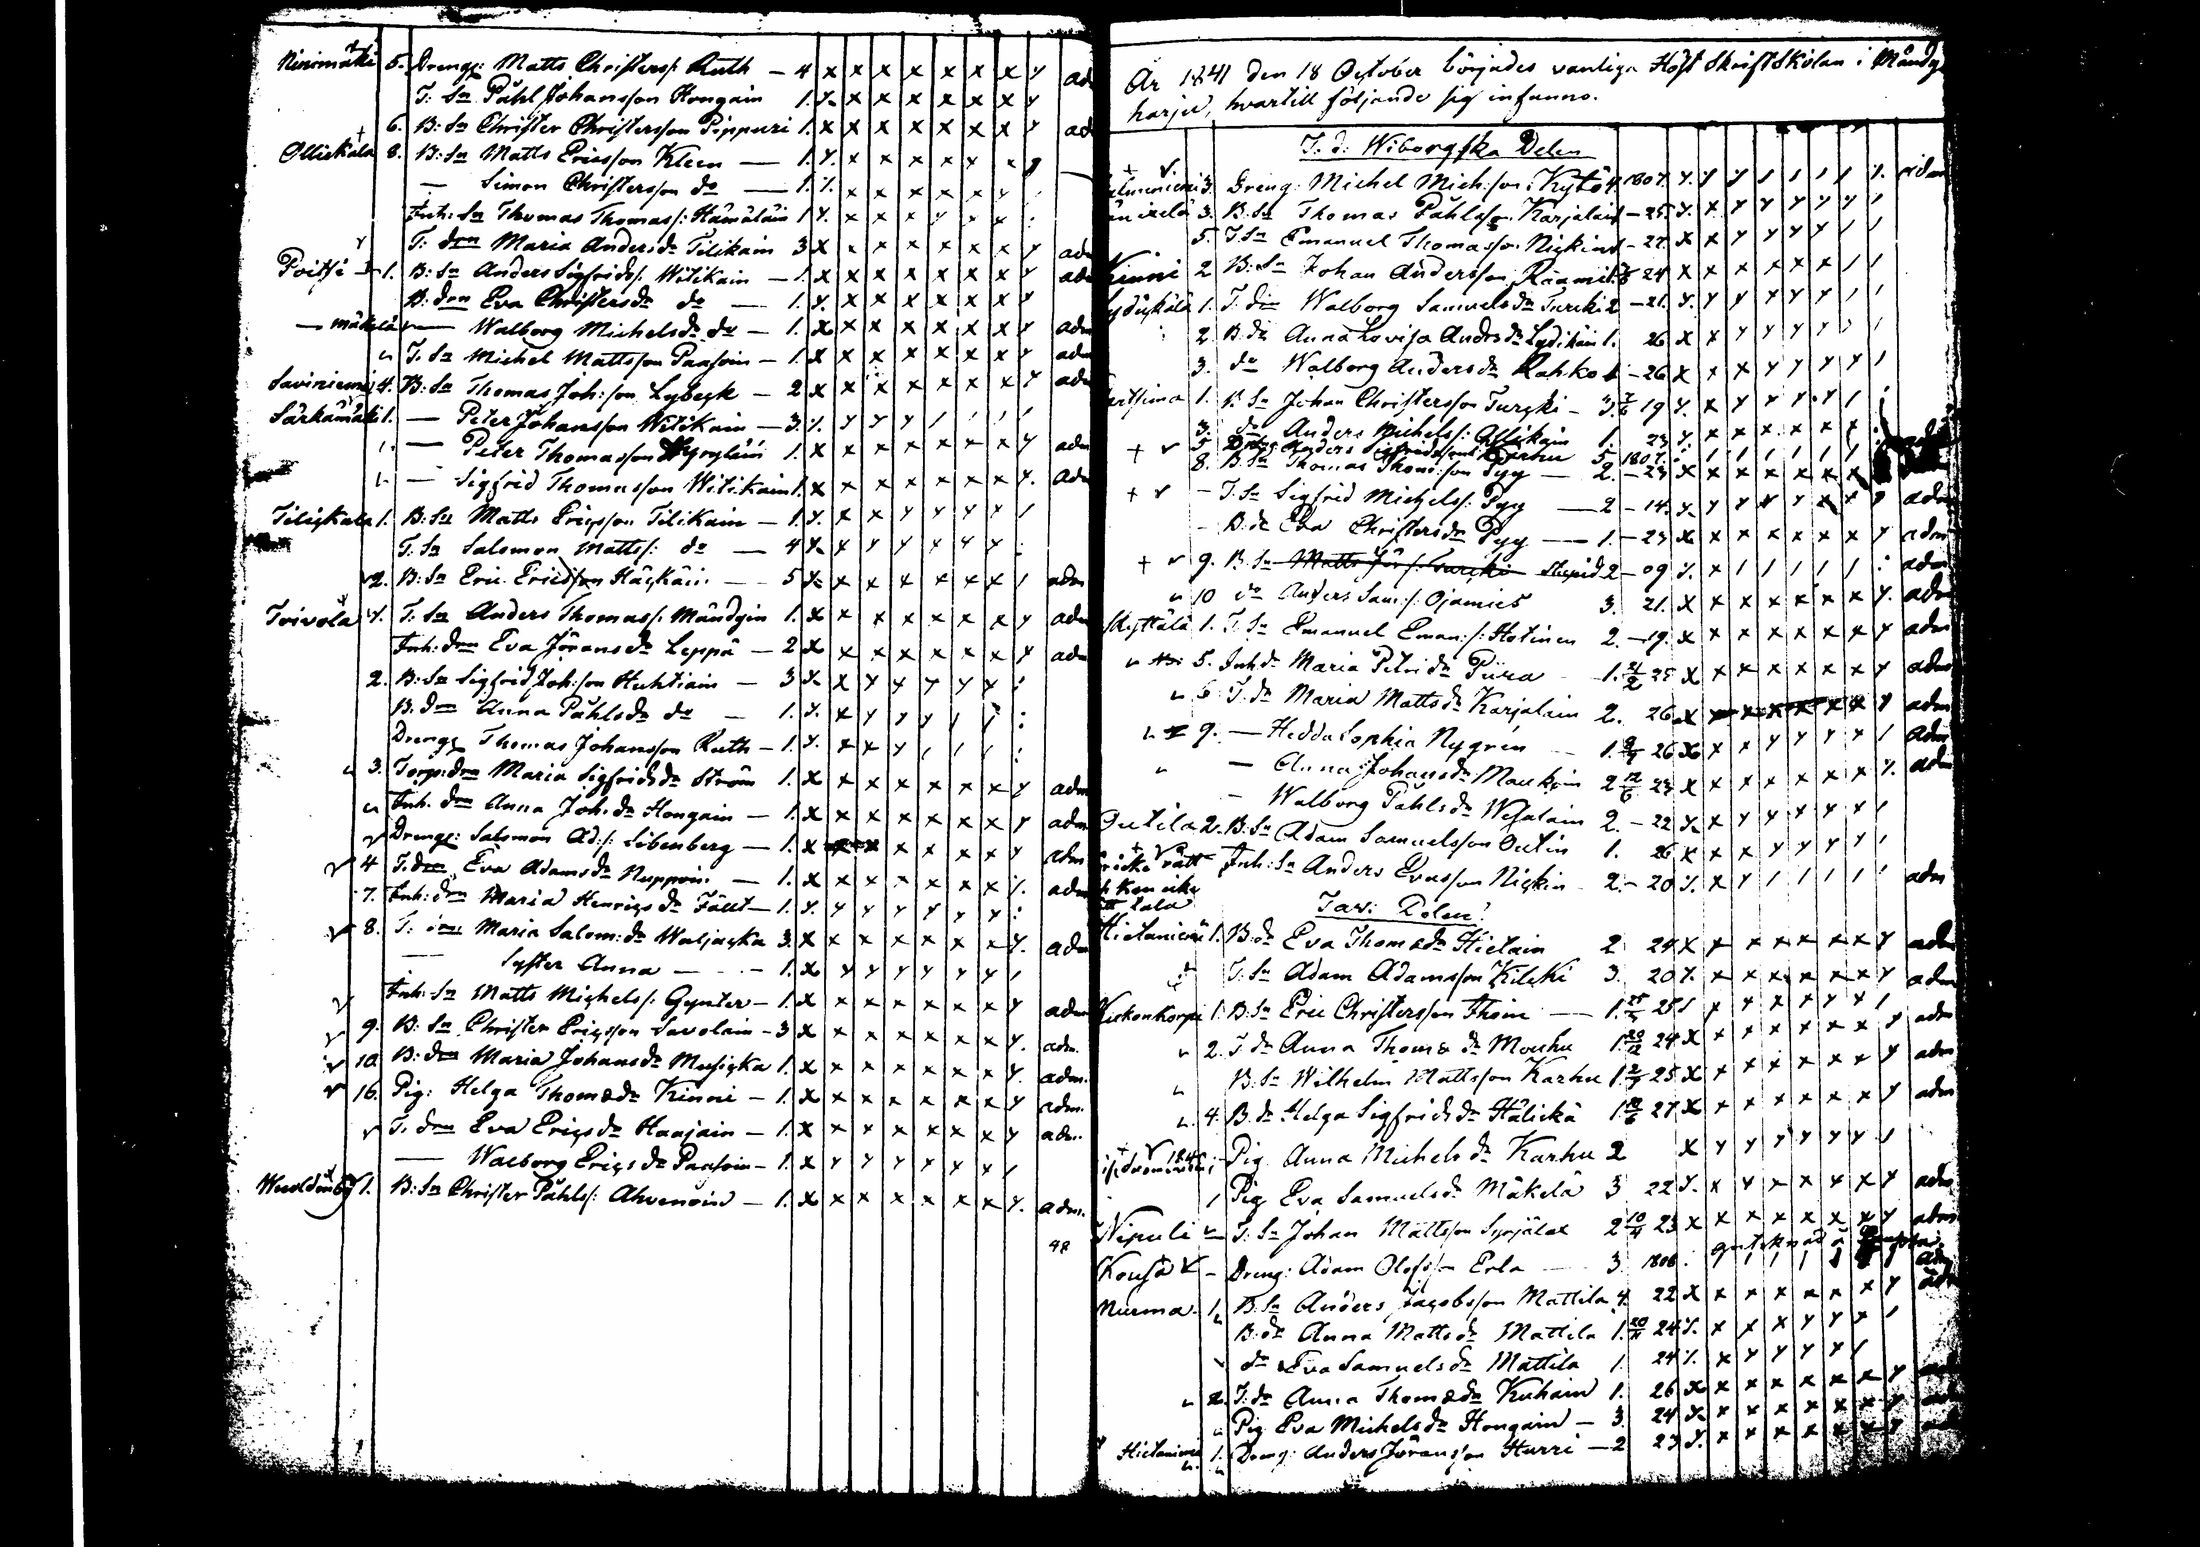 Ninimäki 5. Dreng: Matts Christers/: Ruth — 4 x x x x x x x y ad
T: Sn Påhl Johansson Hongain 1. y. x x x x x x y
6. B: Sn Christer Christersson Pippuri 1. x x x x x x x y ad
Ollickala 8. B: Sn Matts Ericsson Kleen — 1. y. x x x x x x
— Simon Christersson do — 1. y. x x x x x x
Inh: Sn Thomas Thomas/: Hämäläin 1 y. x x x y x x
T: drn Maria Andersdr Tilikain 3 x x x x x x x y adm
Poitsi 1. B: Sn Anders Sigfrids/: Witikain — 1. x x x x x x x y adm
B: drn Eva Christersdr do — 1. y. x x x x x x y
— mäkelä — Walborg Michelsdr do — 1. x x x x x x x y adm
T: Sn Michel Mattsson Paasoin — 1. x x x x x x x y adm
Saviniemi 4. B: Sn Thomas Joh: son Lybeck — 2 x x x x x x x y adm
Särkämäki 1. — Peter Johansson Witikain — 3. y. y y y / / / /
— Peter Thomasson 1. x x x x x x x y adm
— Sigfrid Thomasson Witikain 1. x x x x x x x y. adm
Tilickala 1. B: Sn Matts Ericsson Tilikain — 1. y. x x y y y y /
T: Sn Salomon Matts/: do — 4 y. x y y x y y
2. B: Sn Eric Ericsson Häckäin — 5 y. x x x x x x / adm
Toivola T: Sn Anders Thomas/: Mändyin 1. x x x x x x x y adm
Inh: drn Eva Jöransdr Leppä — 2 x x x x x x x y adm
2. B: Sn Sigfrid Joh: son Huhtiain — 3 y. x y y y y y
B: drn Anna Påhlsdr do — 1. y. x y y y / /
Dreng Thomas Johansson Ruth — 1. y. x x y / / /
3. Torp: drn Maria Sigfridsdr Ström 1. x x x x x x x y adm
Inh. drn Anna Joh: dr Hongain — 1. x x x x x x x y adm
Dreng: Salomon Ad:/: Löbenberg — 1. x x x x x x x y adm
4 T: drn Eva Adamsdr Nuppoin — 1. x x x x x x x y. adm
7. Inh: drn Maria Henricsdr Fält — 1. y. y y y y y y
8. T: drn Maria Salom: dr Waljacka 3. x x x x x x x y. adm
— Syster Anna — 1. x y y y y y y /
Inh: Sn Matts Michels/: Gynter — 1. x x x x x x x y adm
9. B: Sn Christer Ericsson Savolain — 3 x x x x x x x y. adm.
10. B: drn Maria Johansdr Musicka 1. x x x x x x x y. adm.
16. Pig: Helga Thomædr Kinni — 1. x x x x x x x y adm.
T: drn Eva Ericsdr Haajain — 1. x x x x x x x y adm.
— Walborg Ericsdr Paasoin — 1. x y y y y y y /
1. B: Sn Christer Påhls/: Ahvenoin — 1. x x x x x x x y. adm.
48
År 1841 den 18 October börjades vanliga Höst Skrift Skolan i Mändy
harju, hvartill följande sig infunno.
I. d: Wiborgska Delen
3. Dreng: Michel Mich: son Kytö 4. 1807. y. y y / / / / y. adm
3. B: Sn Thomas Påhlsson Karjalain — 25. y. x y y y y y /
5. T: Sn Emanuel Thomasson Nickin — 27. x x y y y y / /
Kinni 2 B: Sn Johan Andersson Räämi 24 x x x x x x / /
1. T: dr Walborg Samuelsdr Turcki 2 — 21. y. y y y y y / /
2. B: dr Anna Lovisa Andersdr Lydikäin 1. 26 x x y y y y
3. do Walborg Andersdr Rahko — 26 x x x y y y y /
1. B: Sn Johan Christersson Turcki — 3. 19 y. x y y y y /
3. do Anders Michels/: Ollikain 1. 23 y. x x x x x x
5 Dreng Anders Sigfridsson Karhu 5 1807. / / / / / /
8. B: Sn Thomas Thom: son Pyy — 2. — 23 x x x x x x x
— T: Sn Sigfrid Michels/: Pyy — 2 — 14. y. y y y y x x y adm
— B: dr Eva Christersdr Pyy — 1. — 23 x x x x x x x y adm
9. B: Sn Matts Jör/: Turcki Stupid 2 — 09 y. x / / / / / adm
10 do Anders Sam:/: Ojamies 3. 21. x x x x x x x y. adm
Skyttälä 1. T: Sn Emanuel Eman:/: Hotinen 2. — 19. x x x x x x x y adm
5. Inh dr Maria Petridr Piira 1. 25 x x x x x x x y adm
6. T: dr Maria Mattsdr Karjalain 2. 26 x x x x x x x y adm
9. — Hedda Sophia Nygrén 1. 26 x x x y y y y / adm
— Anna Johansdr Maukoin 2 12/6 23 x x x x x x x y. adm
— Walborg Påhlsdr Wesalain 2. — 22 y. x y y y y y /
Outila 2. B: Sn Adam Samuelsson Outin 1. 26 x x x y y y y /
Inh: Sn Anders Evasson Nickin — 2. — 20 y. x y / / / / / adm
Tav: Delen
Hietaniemi 1. B: dr Eva Thomædr Hietain 2 24 x x x x x x x y adm
T: Sn Adam Adamsson Kilcki 3. 20 y. x x x x x x y adm
1. B: Sn Eric Christersson Thom — 1. 25 / x y x x y y / adm
2. T: dr Anna Thomædr Mouhu 1. 20/12 24 x x x x x x x y adm
B: Sn Wilhelm Mattsson Karhu 1. 25 x x x x x x x y adm
4. B: dr Helga Sigfridsdr Hälickä 1. 27 x x x x x x x y adm
Pig. Anna Michelsdr Karhu 2 x y y y y y y /
Pig Eva Samuelsdr Mäkelä 3 22 y. x y x x y x y adm
Nipuli T: Sn Johan Mattsson Syrjälä 2 10/4 23 x x x x x x x y adm
Kousa — Dreng: Adam Olofs/n Erla — 3. 1808. / / / / adm
Nurma. 1. B: Sn Anders Jacobsson Mattila 4. 22 x x x x x x x y adm
B: dr Anna Mattsdr Mattila 1. 20/11 24 y. x x x y y y /
do Eva Samuelsdr Mattila 1. 24 y. x y y y y /
2. T: dr Anna Thomædr Kuhain 1. 26 x x x x x x x y
Pig. Eva Michelsdr Hongain — 3. 24 y. x x x x x x y
Hietaniemi 1. Dreng: Anders Jöransson Hurri — 2 23 y. x x x x x x y